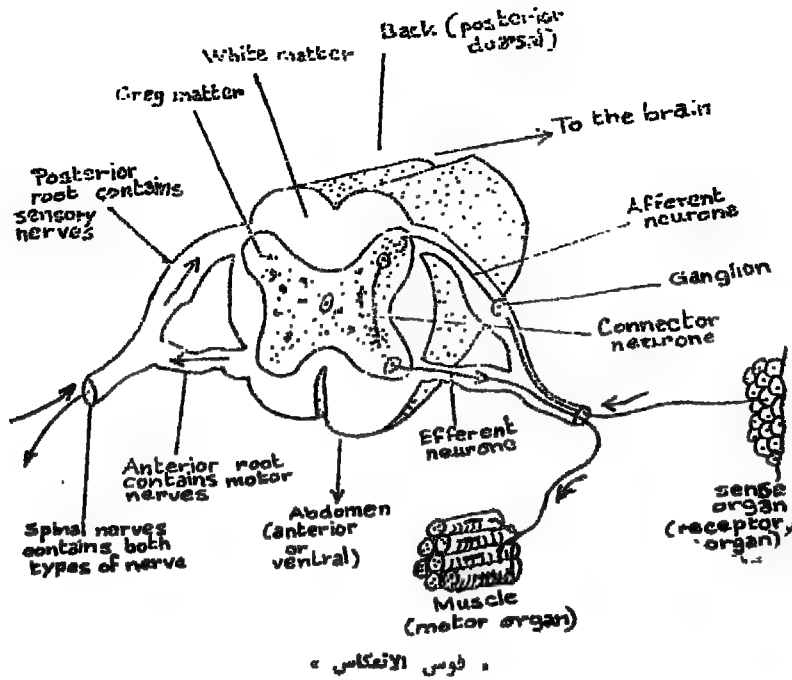 Back (posterior
dorsal)
White matter
Greg matter
To the brain
Posterior
root contains
sensory
nerves
Afferent
neurone
Ganglion
Connector
neurone
Efferent
neurone
Anterior root
contains motor
nerves
Abdomen
(anterior
or
ventral)
Spinal nerves
contains both
types of nerve
sense
organ
(receptory
organ)
Muscle
(motor organ)
« قوس الانعكاس »